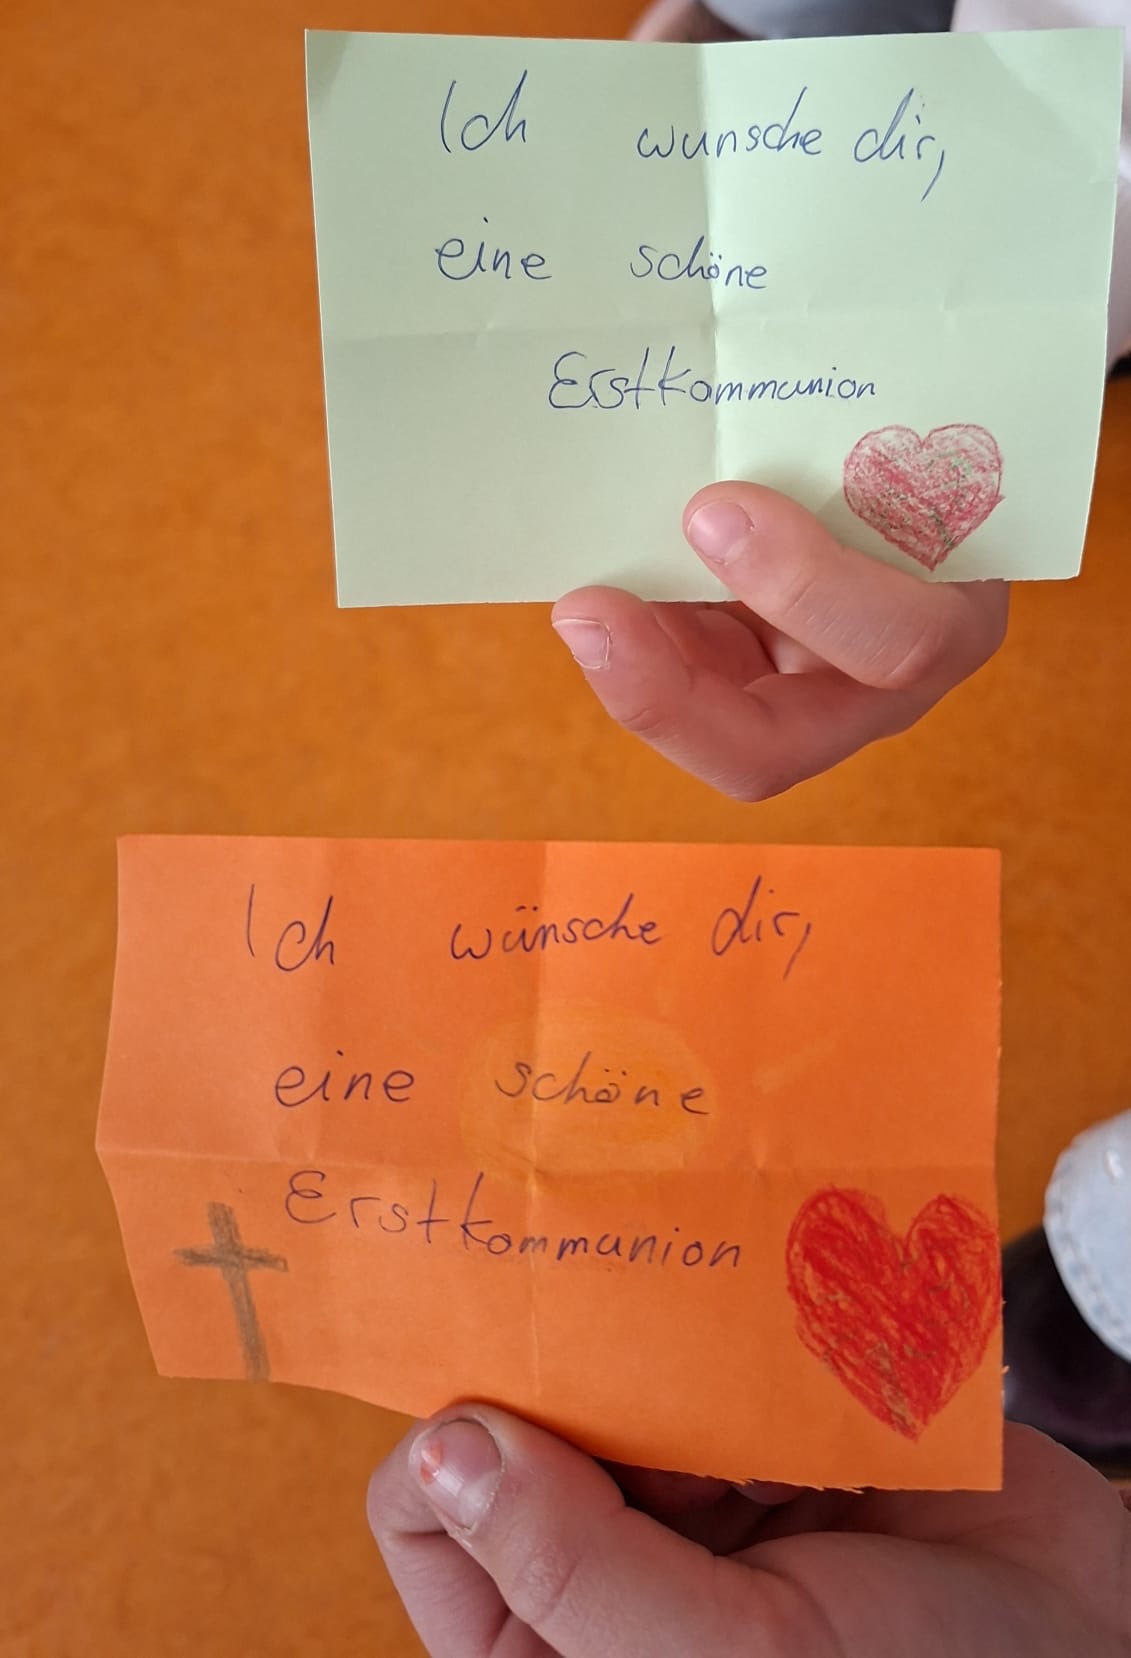 Ich wunsche dir,
eine schöne
Erstkommunion
Ich wünsche dir,
eine schöne
Erstkommunion